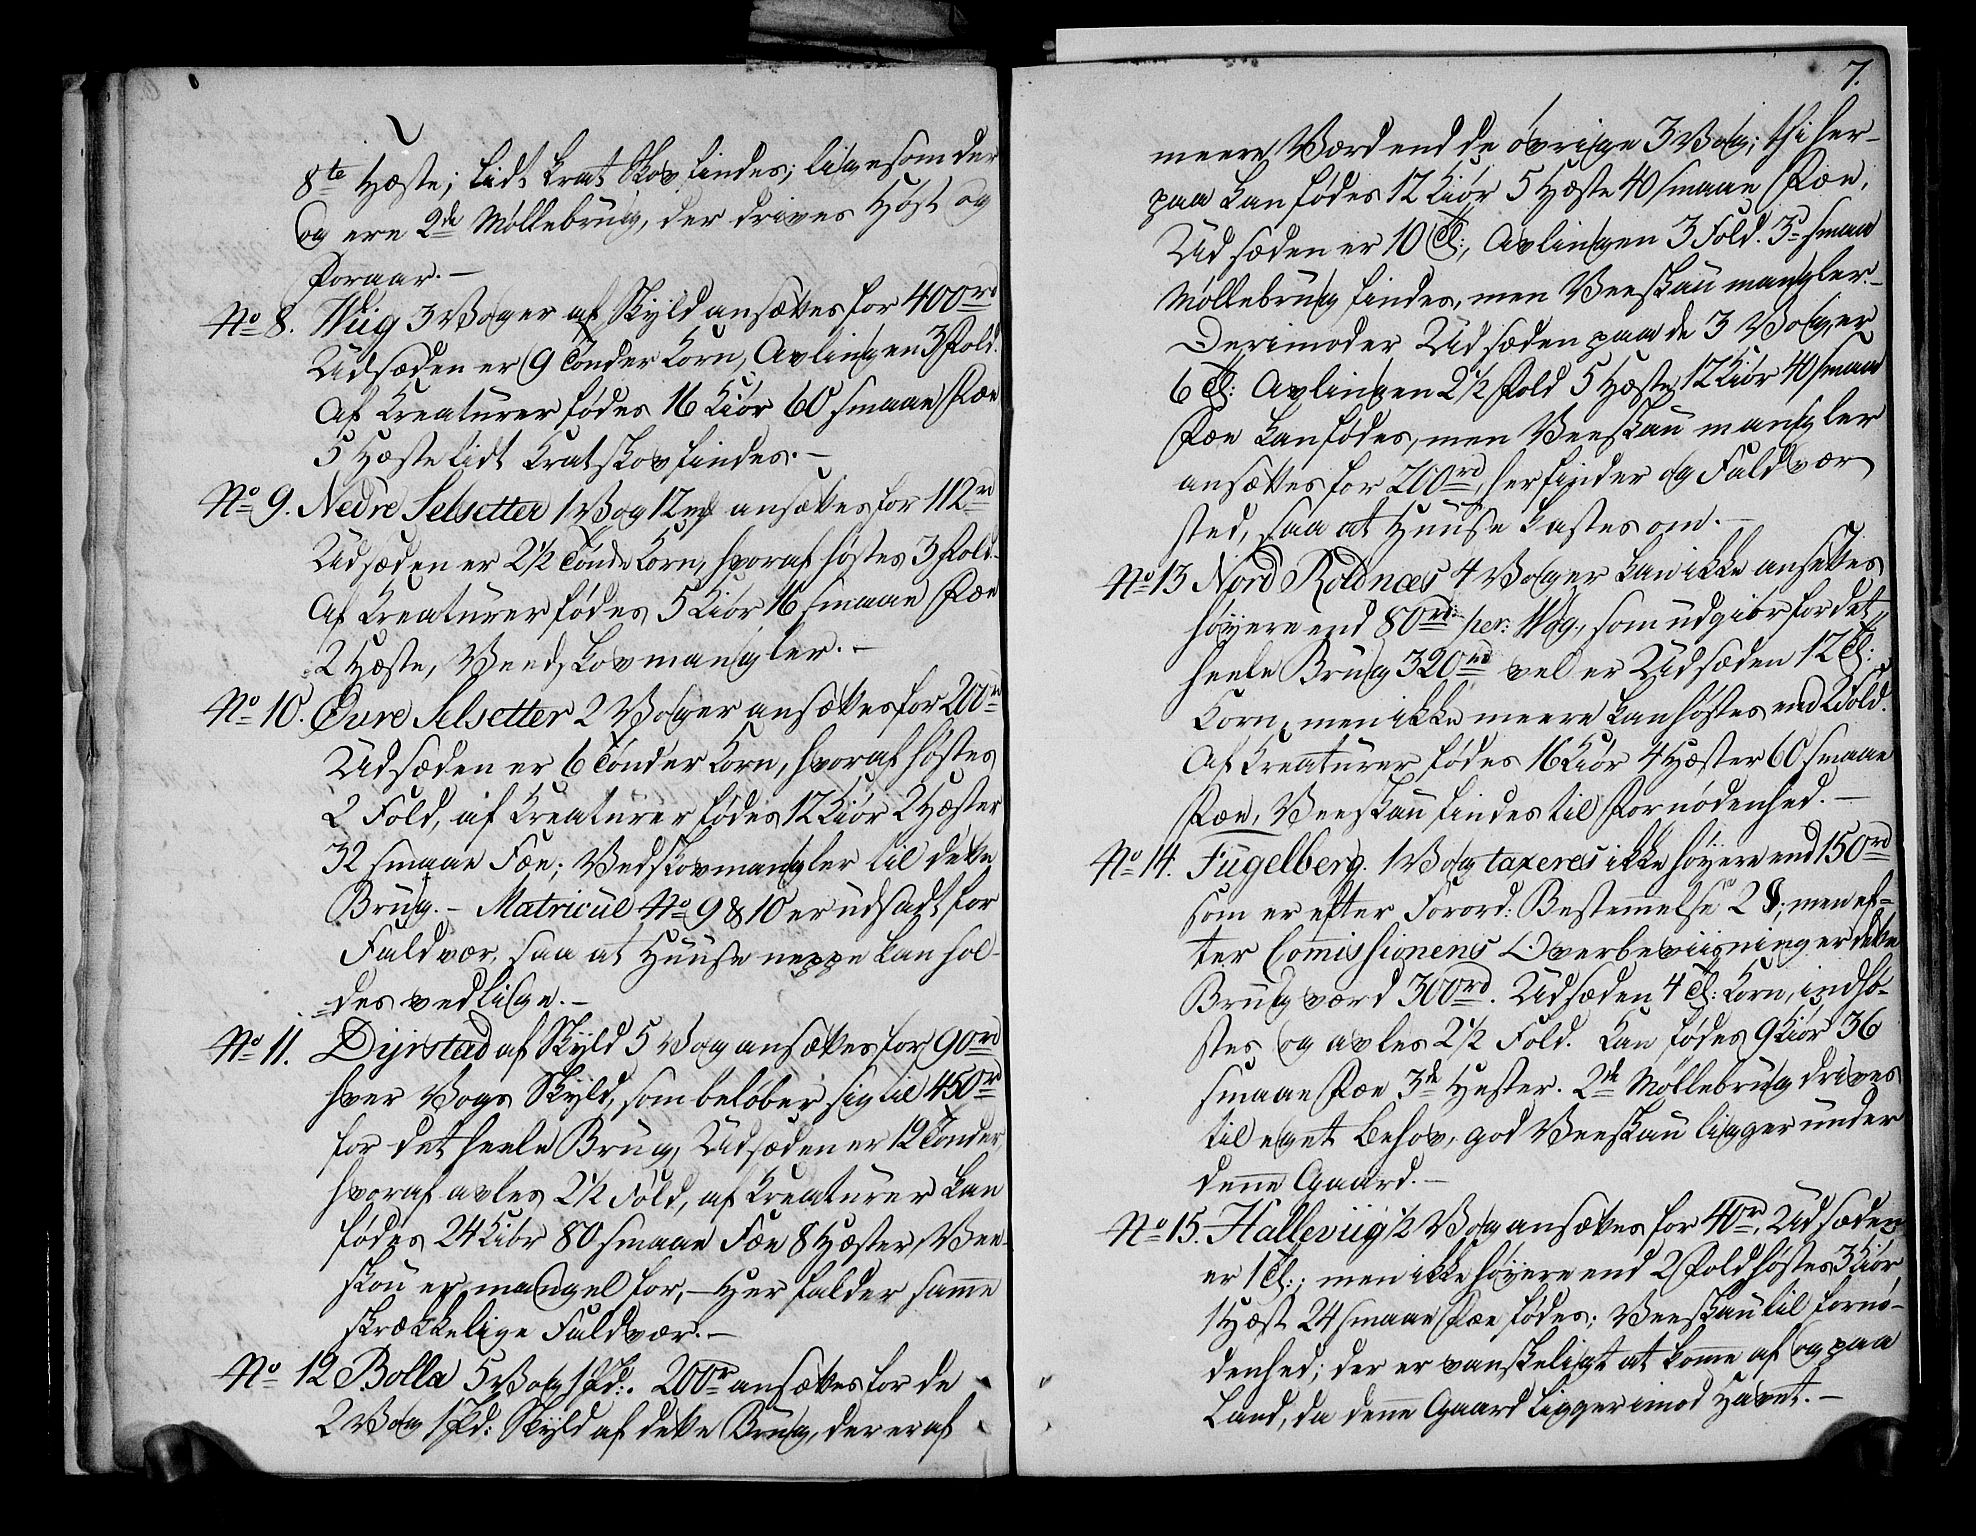 8te Hæste; lidt krat Skov findes; ligesom der
og ere 2de Møllebrug, der drives Høst og
Foraar. –
No 8. Wiig 3 Voger af Skyld ansættes for 400rd
Udsæden er 9 Tønder Korn, Avlingen 3 Fold.
Af Kreaturer fødes 16 Kiør 60 smaae Fæe
5 Hæste lidt Kratskov findes. –
No 9. Nedre Selsetter 1 Vog 12 mk ansættes for 112rd
Udsæden er 2½ Tønde Korn, hvoraf høstes 3 Fold.
Af Kreaturer fødes 5 Kiør 16 smaae Fæe
2 Hæste, Veedskov mangler. –
No 10. Øvre Selsetter 2 Voger ansættes for 200rd
Udsæden er 6 Tønder Korn, hvoraf høstes
2 Fold, af Kreaturer fødes 12 Kiør 2 Hæster
32 smaae Fæe; Vedskov mangler til dette
Brug. – Matricul No 9 & 10 er udsadt for
Faldvær, saa at Huuse neppe kan hol-
des vedlige. –
No 11. Dyrstad af Skyld 5 Vog ansættes for 90rd
hver Vogs Skyld, som beløber sig til 450rd
for det heele Brug, Udsæden er 12 Tønder,
hvoraf avles 2½ Fold, af Kreaturer kan
fødes 24 Kiør 80 smaae Fæe 8 Hæster, Vee-
skou er mangel for, – Her falder samme
skrækkelige Faldvær. –
No 12 Bolla 5 Vog 1 Pd:. 200rd ansættes for de
2 Vog 1 Pd: Skyld af dette Brug, der er af
7.
meere Værd end de øvrige 3 Vog; thi her-
paa kan fødes 12 Kiør 5 Hæste 40 smaae Fæe,
Udsæden er 10 Td:, Avlingen 3 Fold. 3de smaa
Møllebrug findes, men Veeskau mangler. –
Derimod er Udsæden paa de 3 Voger
6 Td: Avlingen 2½ Fold 5 Hæste 12 Kiør 40 smaa
Fæe kan fødes, men Veeskau mangler
ansættes for 200rd, her finder og Faldvær
sted, saa at Huuse kastes om. –
No 13 Nord Roldnæs 4 Voger kan ikke ansettes
høyere end 80rd: per: Wog., som udgiør for det
heele Brug 320rd vel er Udsæden 12 Td:
Korn, men ikke meere kan høstes end 2 Fold.
Af Kreaturer fødes 16 Kiør 4 Hæster 60 smaae
Fæe, Veeskau findes til Fornødenhed. –
No 14. Fugelberg. 1 Vog taxeres ikke høyere end 150rd
som er efter Forord: Bestemmelse 2 ; men ef-
ter Commissionens Overbeviisning er dette
Brug værd 300rd. Udsæden 4 Td: Korn, indhø-
stes og avles 2½ Fold. Kan fødes 9 Kiør 36
smaae Fæe 3de Hester. 2de Møllebrug drives
til eget Behov, god Veeskau ligger under
denne Gaard. –
No 15. Halleviig ½ Vog ansættes for 40rd. Udsæden
er 1 Td:; men ikke høyere end 2 Fold høstes 3 Kiør
1 Hæst 24 smaae Fæe fødes; Veeskau til fornø-
denhed; der er vanskeligt at komme af og paa
Land, da denne Gaard ligger imod Havet. –